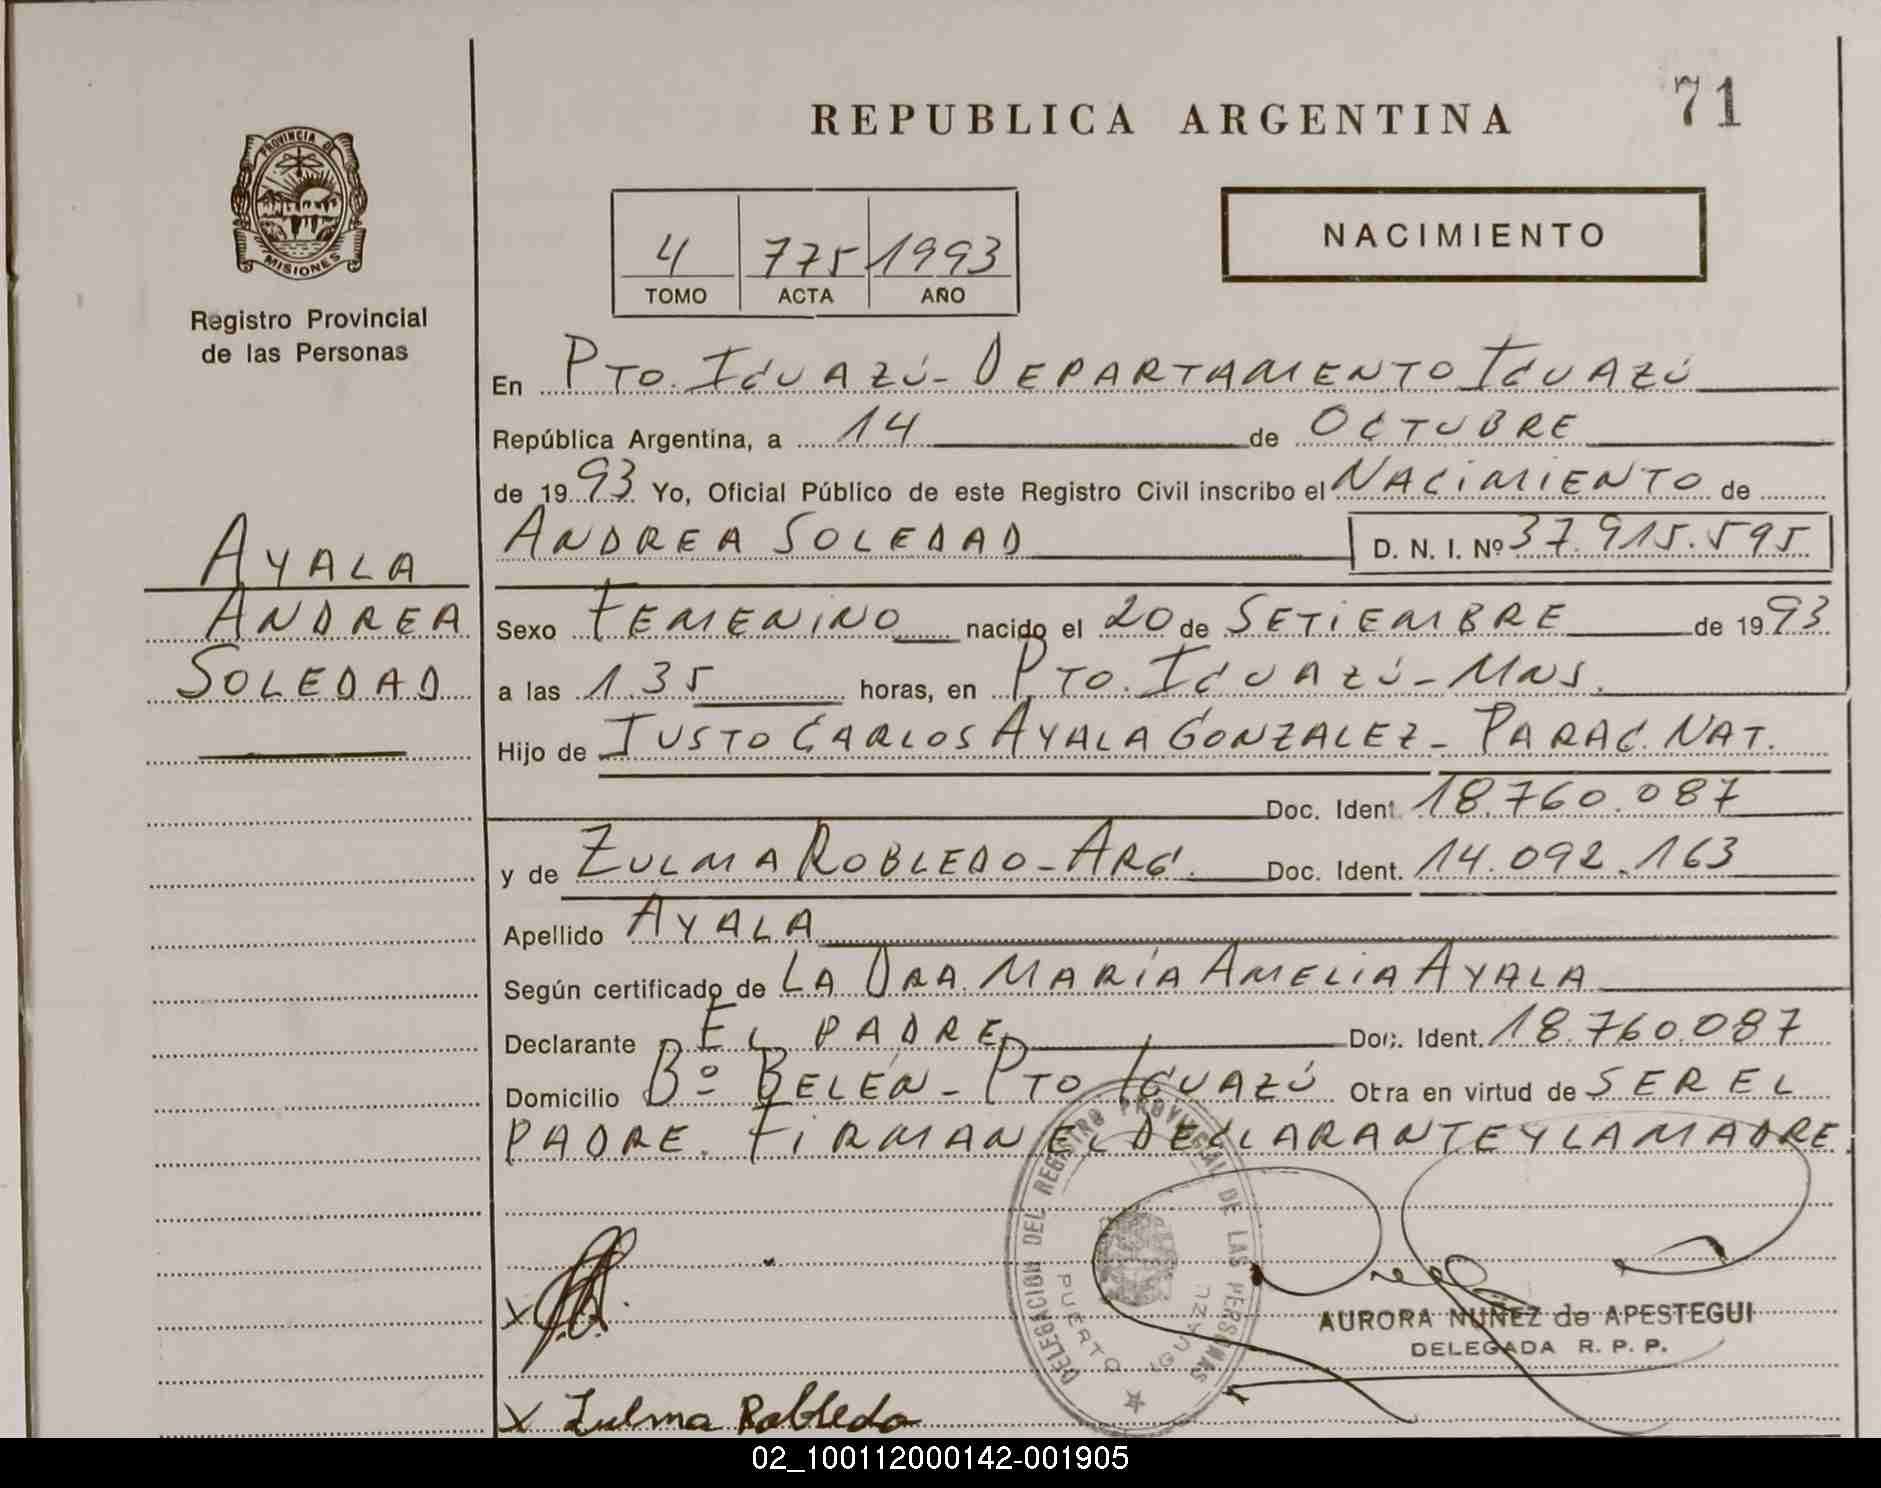 REPUBLICA ARGENTINA
71
PROVINCIA DE
MISIONES
Registro Provincial
de las Personas
4 775 1993
TOMO ACTA AÑO
NACIMIENTO
En PTO. IGUAZÚ - DEPARTAMENTO IGUAZÚ
República Argentina, a 14 de OCTUBRE
de 1993 Yo, Oficial Público de este Registro Civil inscribo el NACIMIENTO de
ANDREA SOLEDAD D. N. I. Nº 37.915.595
AYALA
ANDREA
SOLEDAD
Sexo FEMENINO nacido el 20 de SETIEMBRE de 1993
a las 1.35 horas, en PTO. IGUAZÚ - MNS.
Hijo de JUSTO CARLOS AYALA GONZALEZ - PARAG. NAT.
Doc. Ident. 18.760.087
y de ZULMA ROBLEDO - ARG. Doc. Ident. 14.092.163
Apellido AYALA
Según certificado de LA DRA. MARÍA AMELIA AYALA
Declarante EL PADRE Doc. Ident. 18.760.087
Domicilio Bº BELÉN - PTO IGUAZÚ Obra en virtud de SER EL
PADRE. FIRMAN EL DECLARANTE Y LA MADRE.
DELEGACION DEL REGISTRO PROVINCIAL DE LAS PERSONAS
PUERTO IGUAZU
X
AURORA NUÑEZ de APESTEGUI
DELEGADA R. P. P.
X Zulma Robledo
02_100112000142-001905